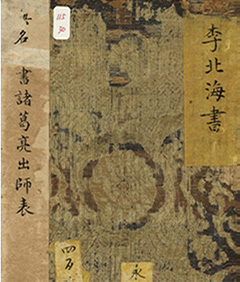 李北海書
115
30
名
書諸葛亮出師表
四百
永